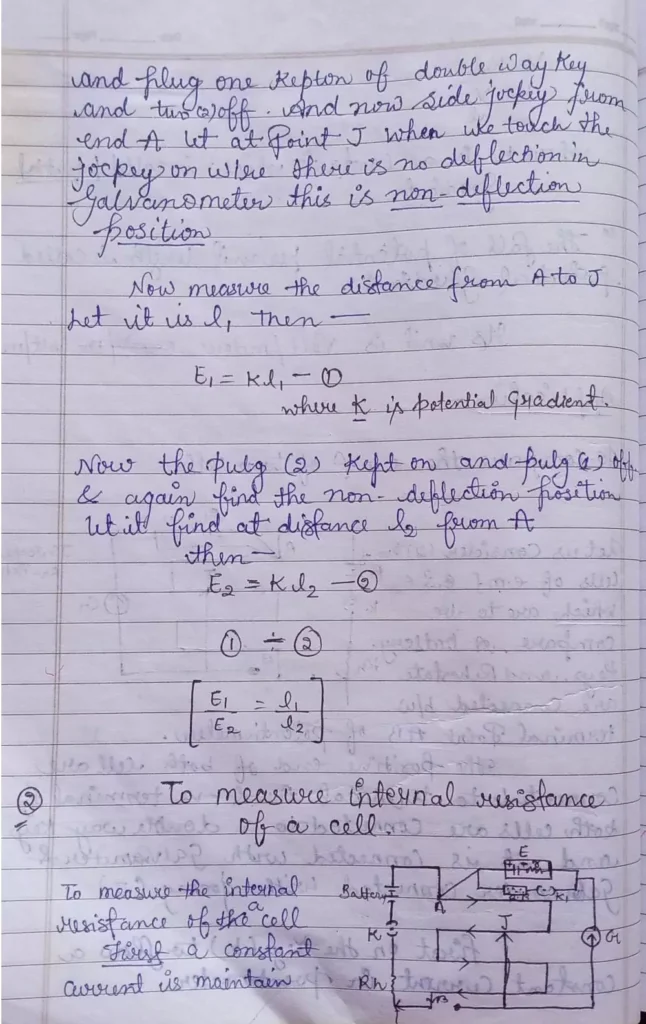 and plug one kepton of double way key
and two (2) off. And now side jockey from
end A let at point J when we touch the
jockey on wire there is no deflection in
galvanometer this is non-deflection
position
Now measure the distance from A to J
Let it is l₁ then —
E₁ = Kl₁ — ①
where K is potential gradient.
Now the pulg (2) kept on and pulg () off
& again find the non-deflection position
let it find at distance l₂ from A
then —
E₂ = Kl₂ — ②
① ÷ ②
[E₁/E₂ = l₁/l₂]
② To measure internal resistance
of a cell.
To measure the internal
resistance of the a cell
First a constant
current is maintain
E
Battery
A
K₁
J
K
G
Rh
B